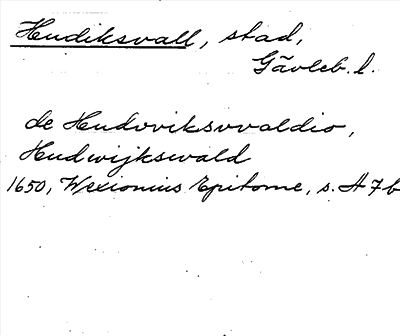 Hudiksvall, stad,
Gävleb. l.
de Hudvviksvvaldio,
Hudwijkswald
1650, Wexionius Epitome, s. A 7 b